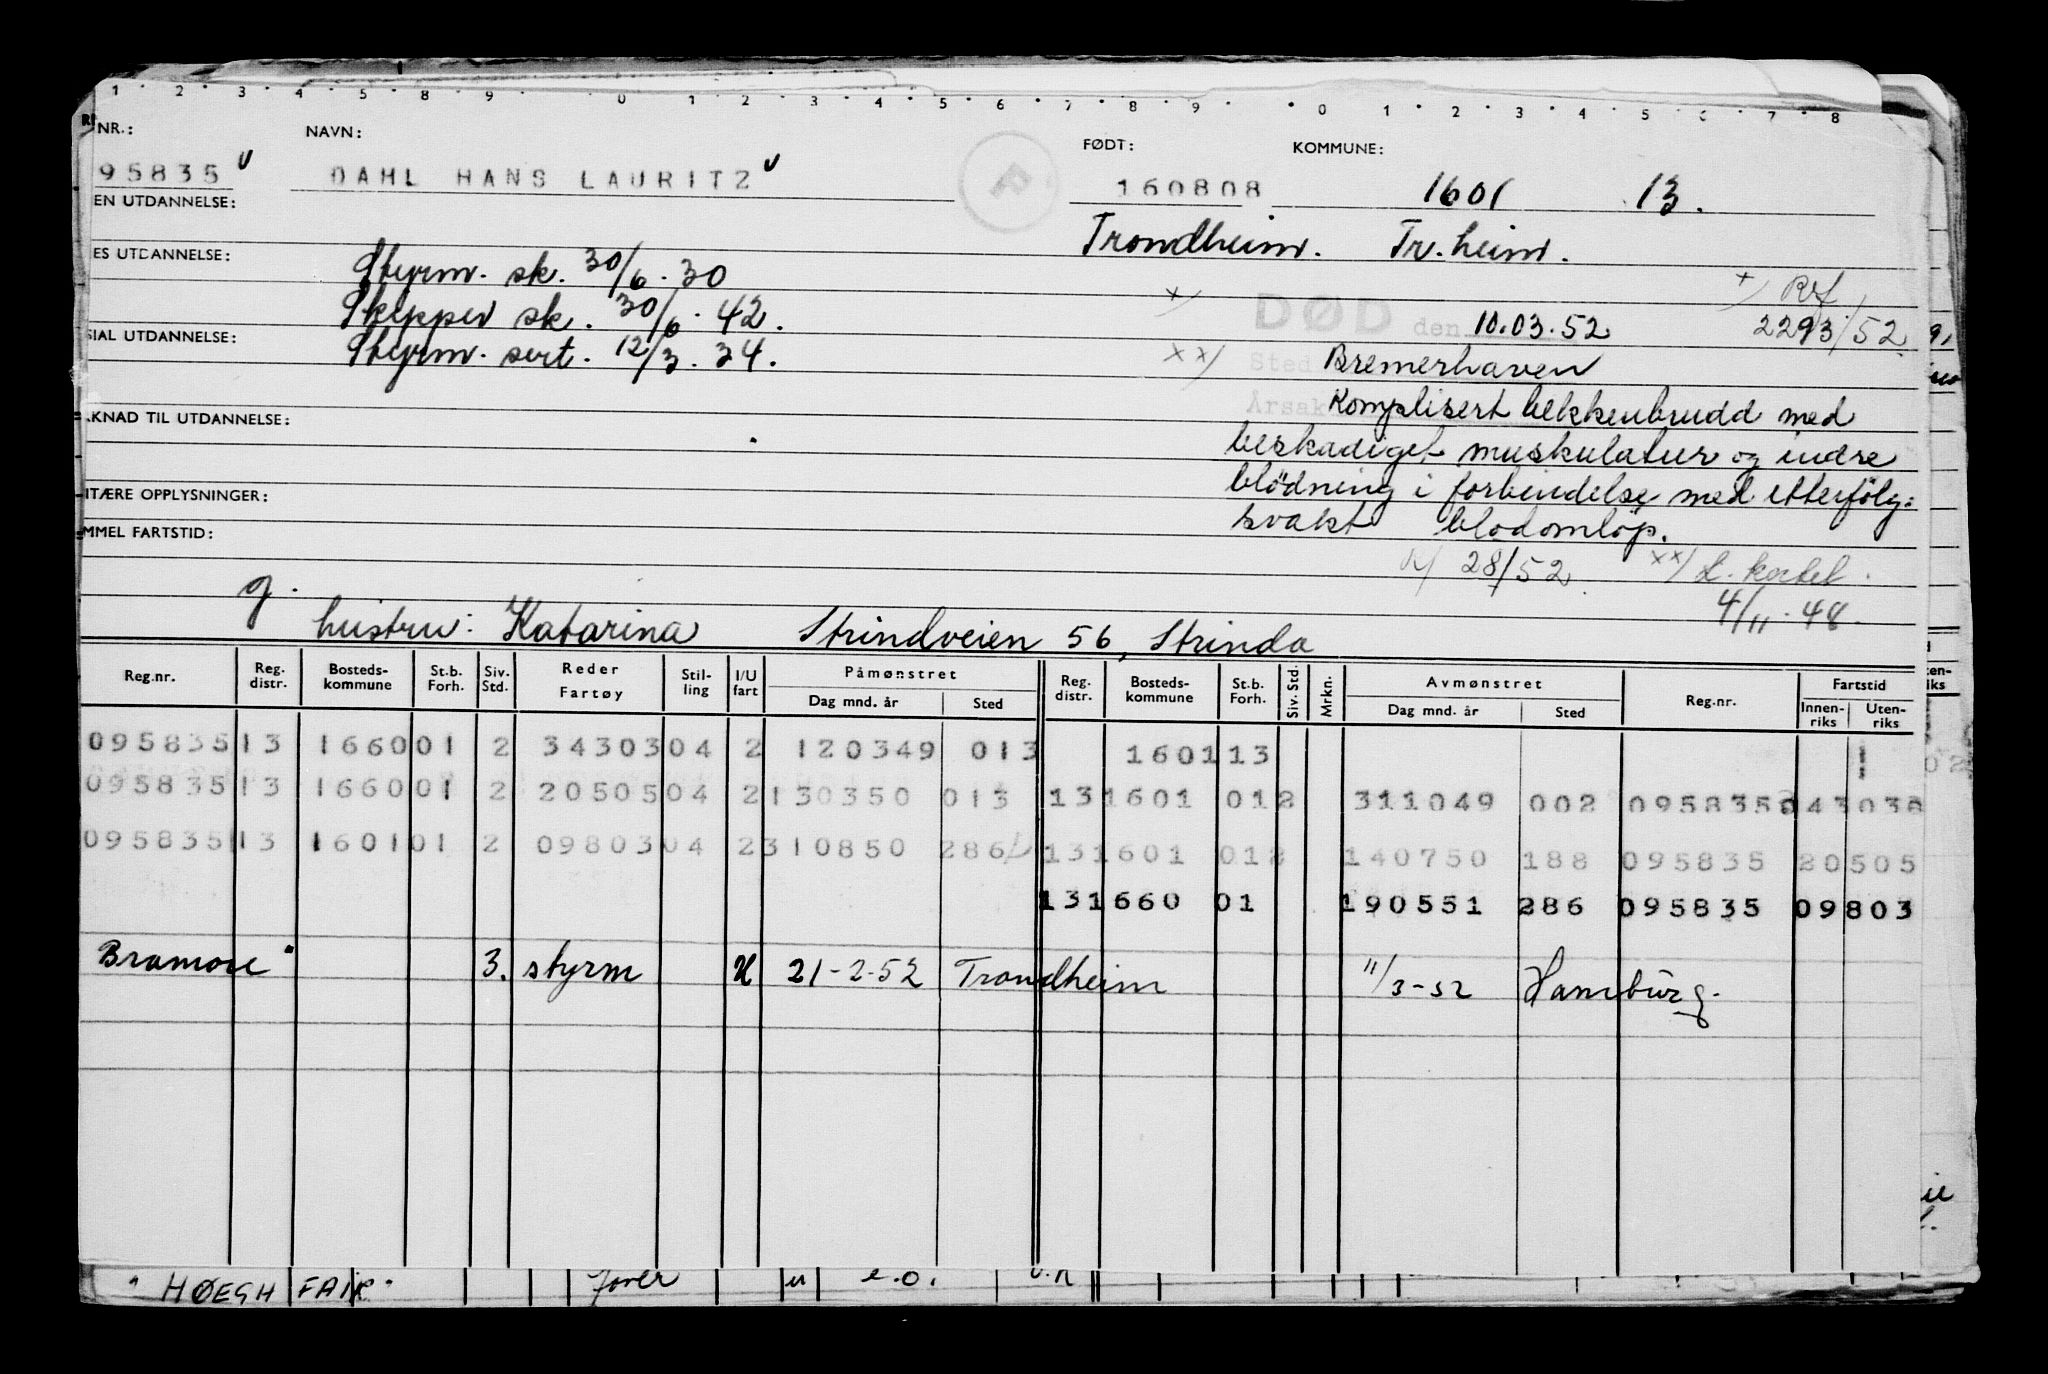 1 2 3 4 5 8 9 0 1 2 3 4 5 6 7 8 9 0 1 2 3 4 5 6 7 8
NR.: NAVN: FØDT: KOMMUNE:
95835 DAHL HANS LAURITZ P 160808 1601 13.
EN UTDANNELSE: Trondheim. Tr.heim.
ES UTDANNELSE: Styrm. sk. 30/6.30
Skipper sk. 30/6.42. DØD den 10.03.52 x/ Ref 2293/52
SIAL UTDANNELSE: Styrm. sert. 12/3.34. xx/ Sted Bremerhaven
Årsak Komplisert bekkenbrudd med
KNAD TIL UTDANNELSE:
beskadiget muskulatur og indre
ITÆRE OPPLYSNINGER: blödning i forbindelse med etterfölg:
MMEL FARTSTID: svakt blodomlöp.
28/52 xx/ kortet.
g. 4/11.48.
hustru: Katarina Strindveien 56, Strinda
Reg.nr. Reg. distr. Bosteds-kommune St.b. Forh. Siv. Std. Reder Fartøy Stil-ling I/U fart Påmønstret Dag mnd. år Sted Reg. distr. Bosteds-kommune St.b. Forh. Siv. Std. Mrkn. Avmønstret Dag mnd. år Sted Reg.nr. Fartstid Innen-riks Uten-riks
095835 13 1660 01 2 34303 04 2 120349 013 1601 13
095835 13 1660 01 2 20505 04 2 130350 013 13 1601 01 2 311049 002 095835
095835 13 1601 01 2 09803 04 2 310850 286 13 1601 01 2 140750 188 095835 20505
13 1660 01 190551 286 095835 09803
Bramora" 3. styrm U 21-2-52 Trondheim 11/3-52 Hamburg.
"HØEGH FAIR" u e.o.